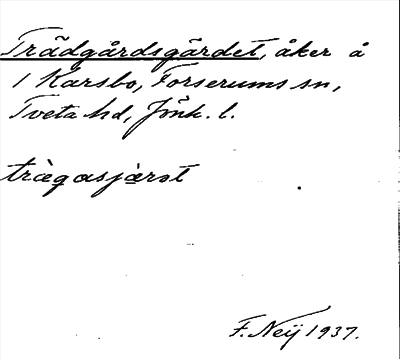 Trädgårdsgärdet, åker å
1 Karsbo, Forserums sn,
Tveta hd, Jönk. l.
trägasjärət
F. Neij 1937.